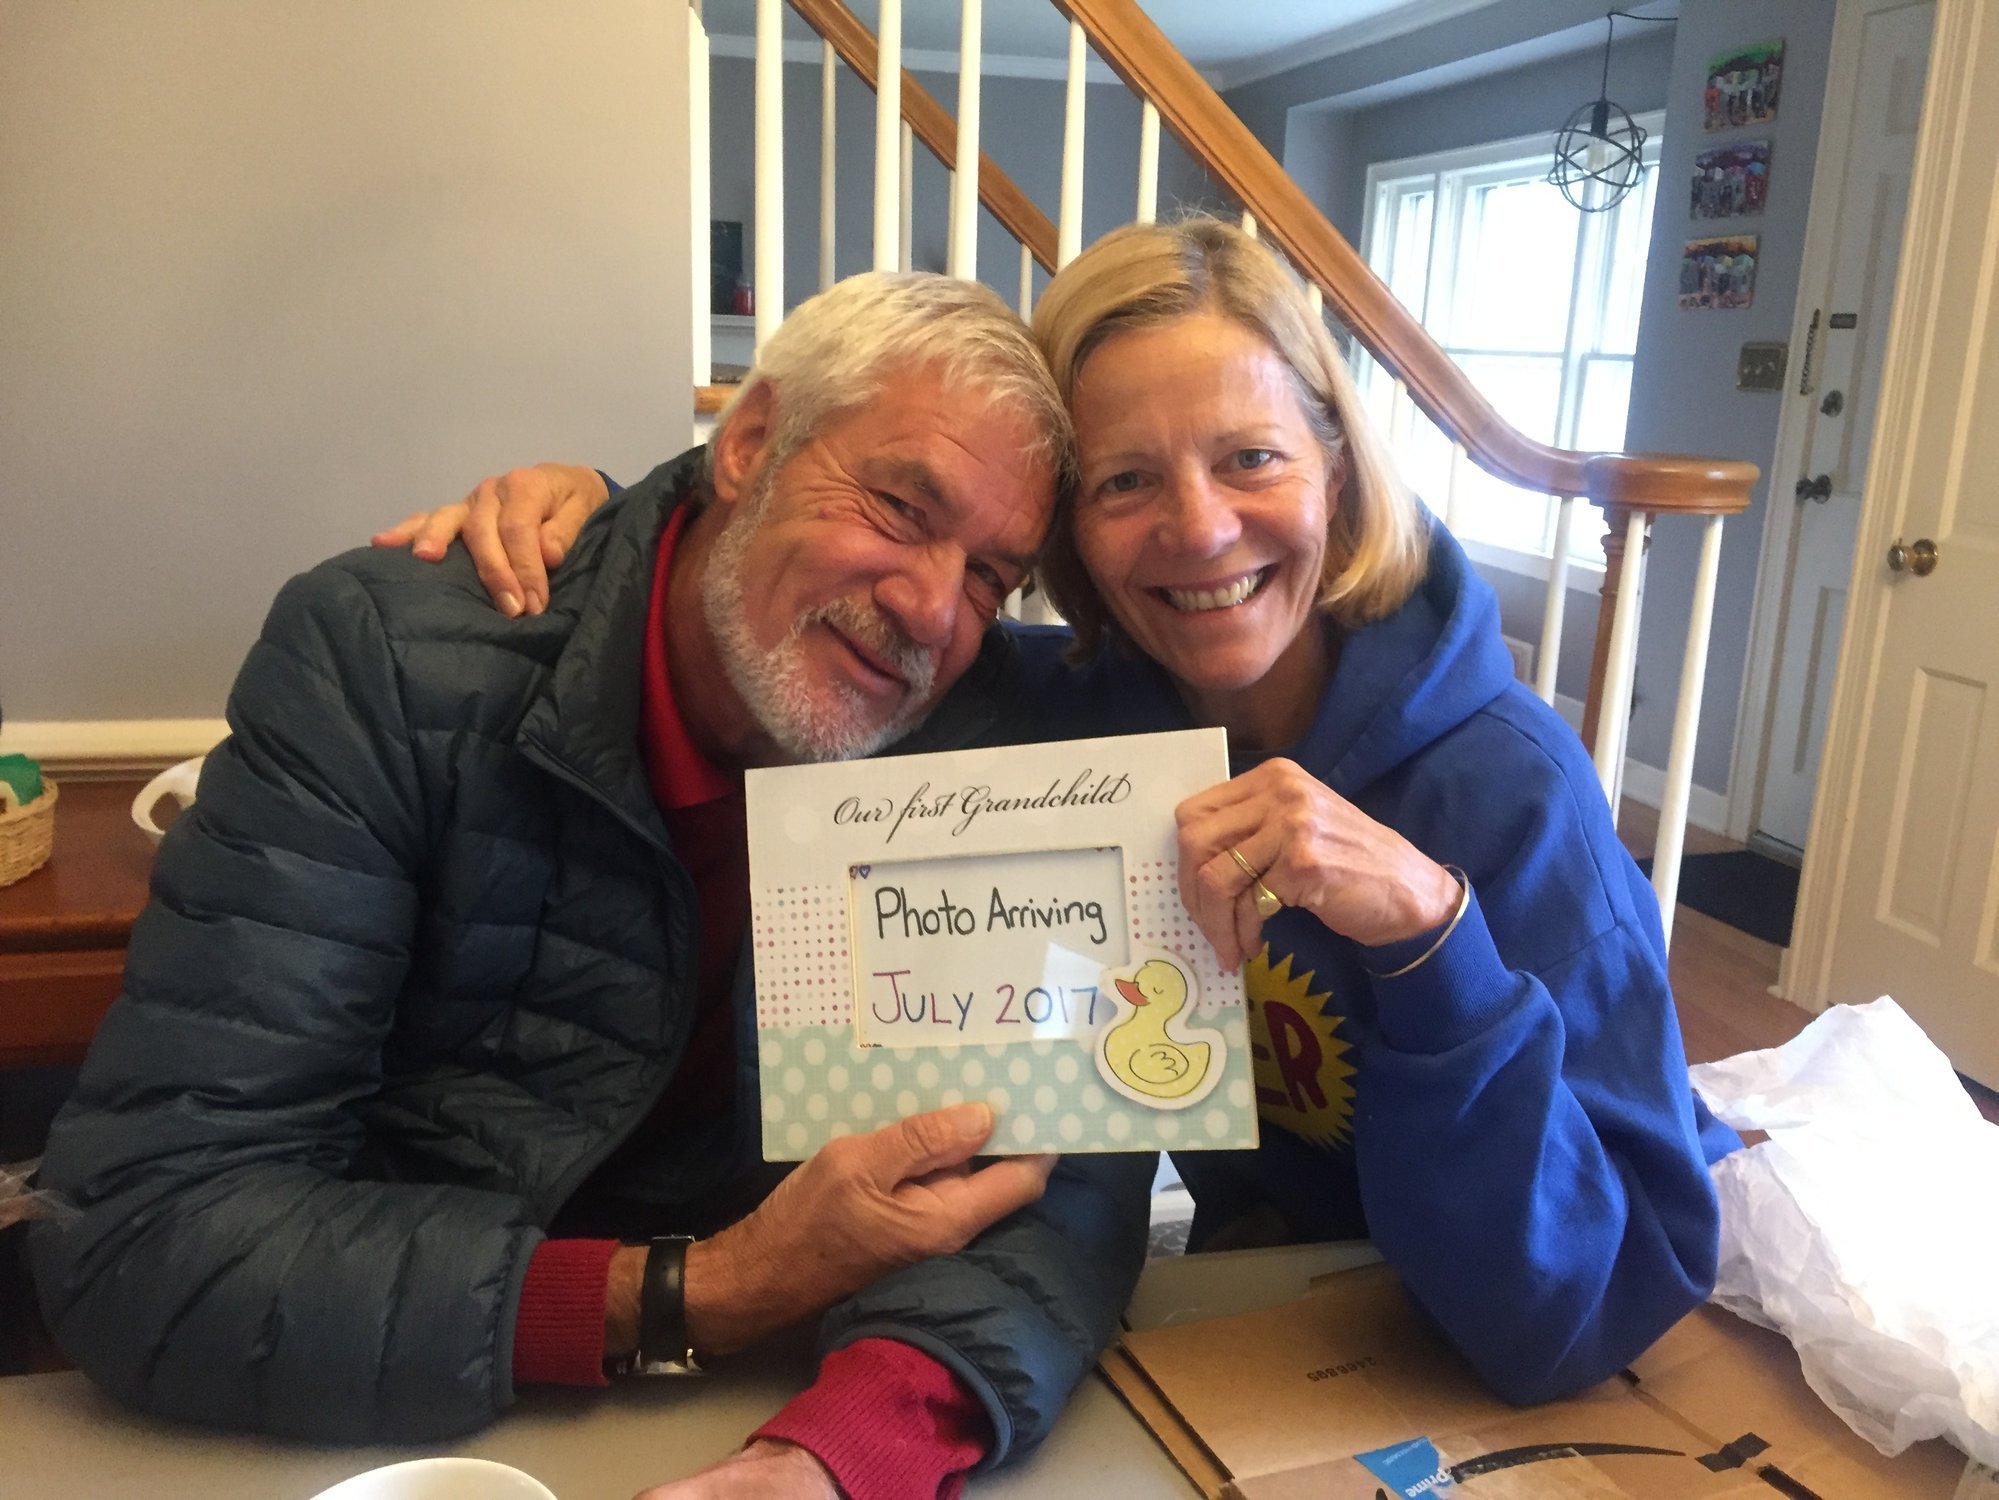 Our first Grandchild
Photo Arriving
July 2017
ER
2466895
Prime